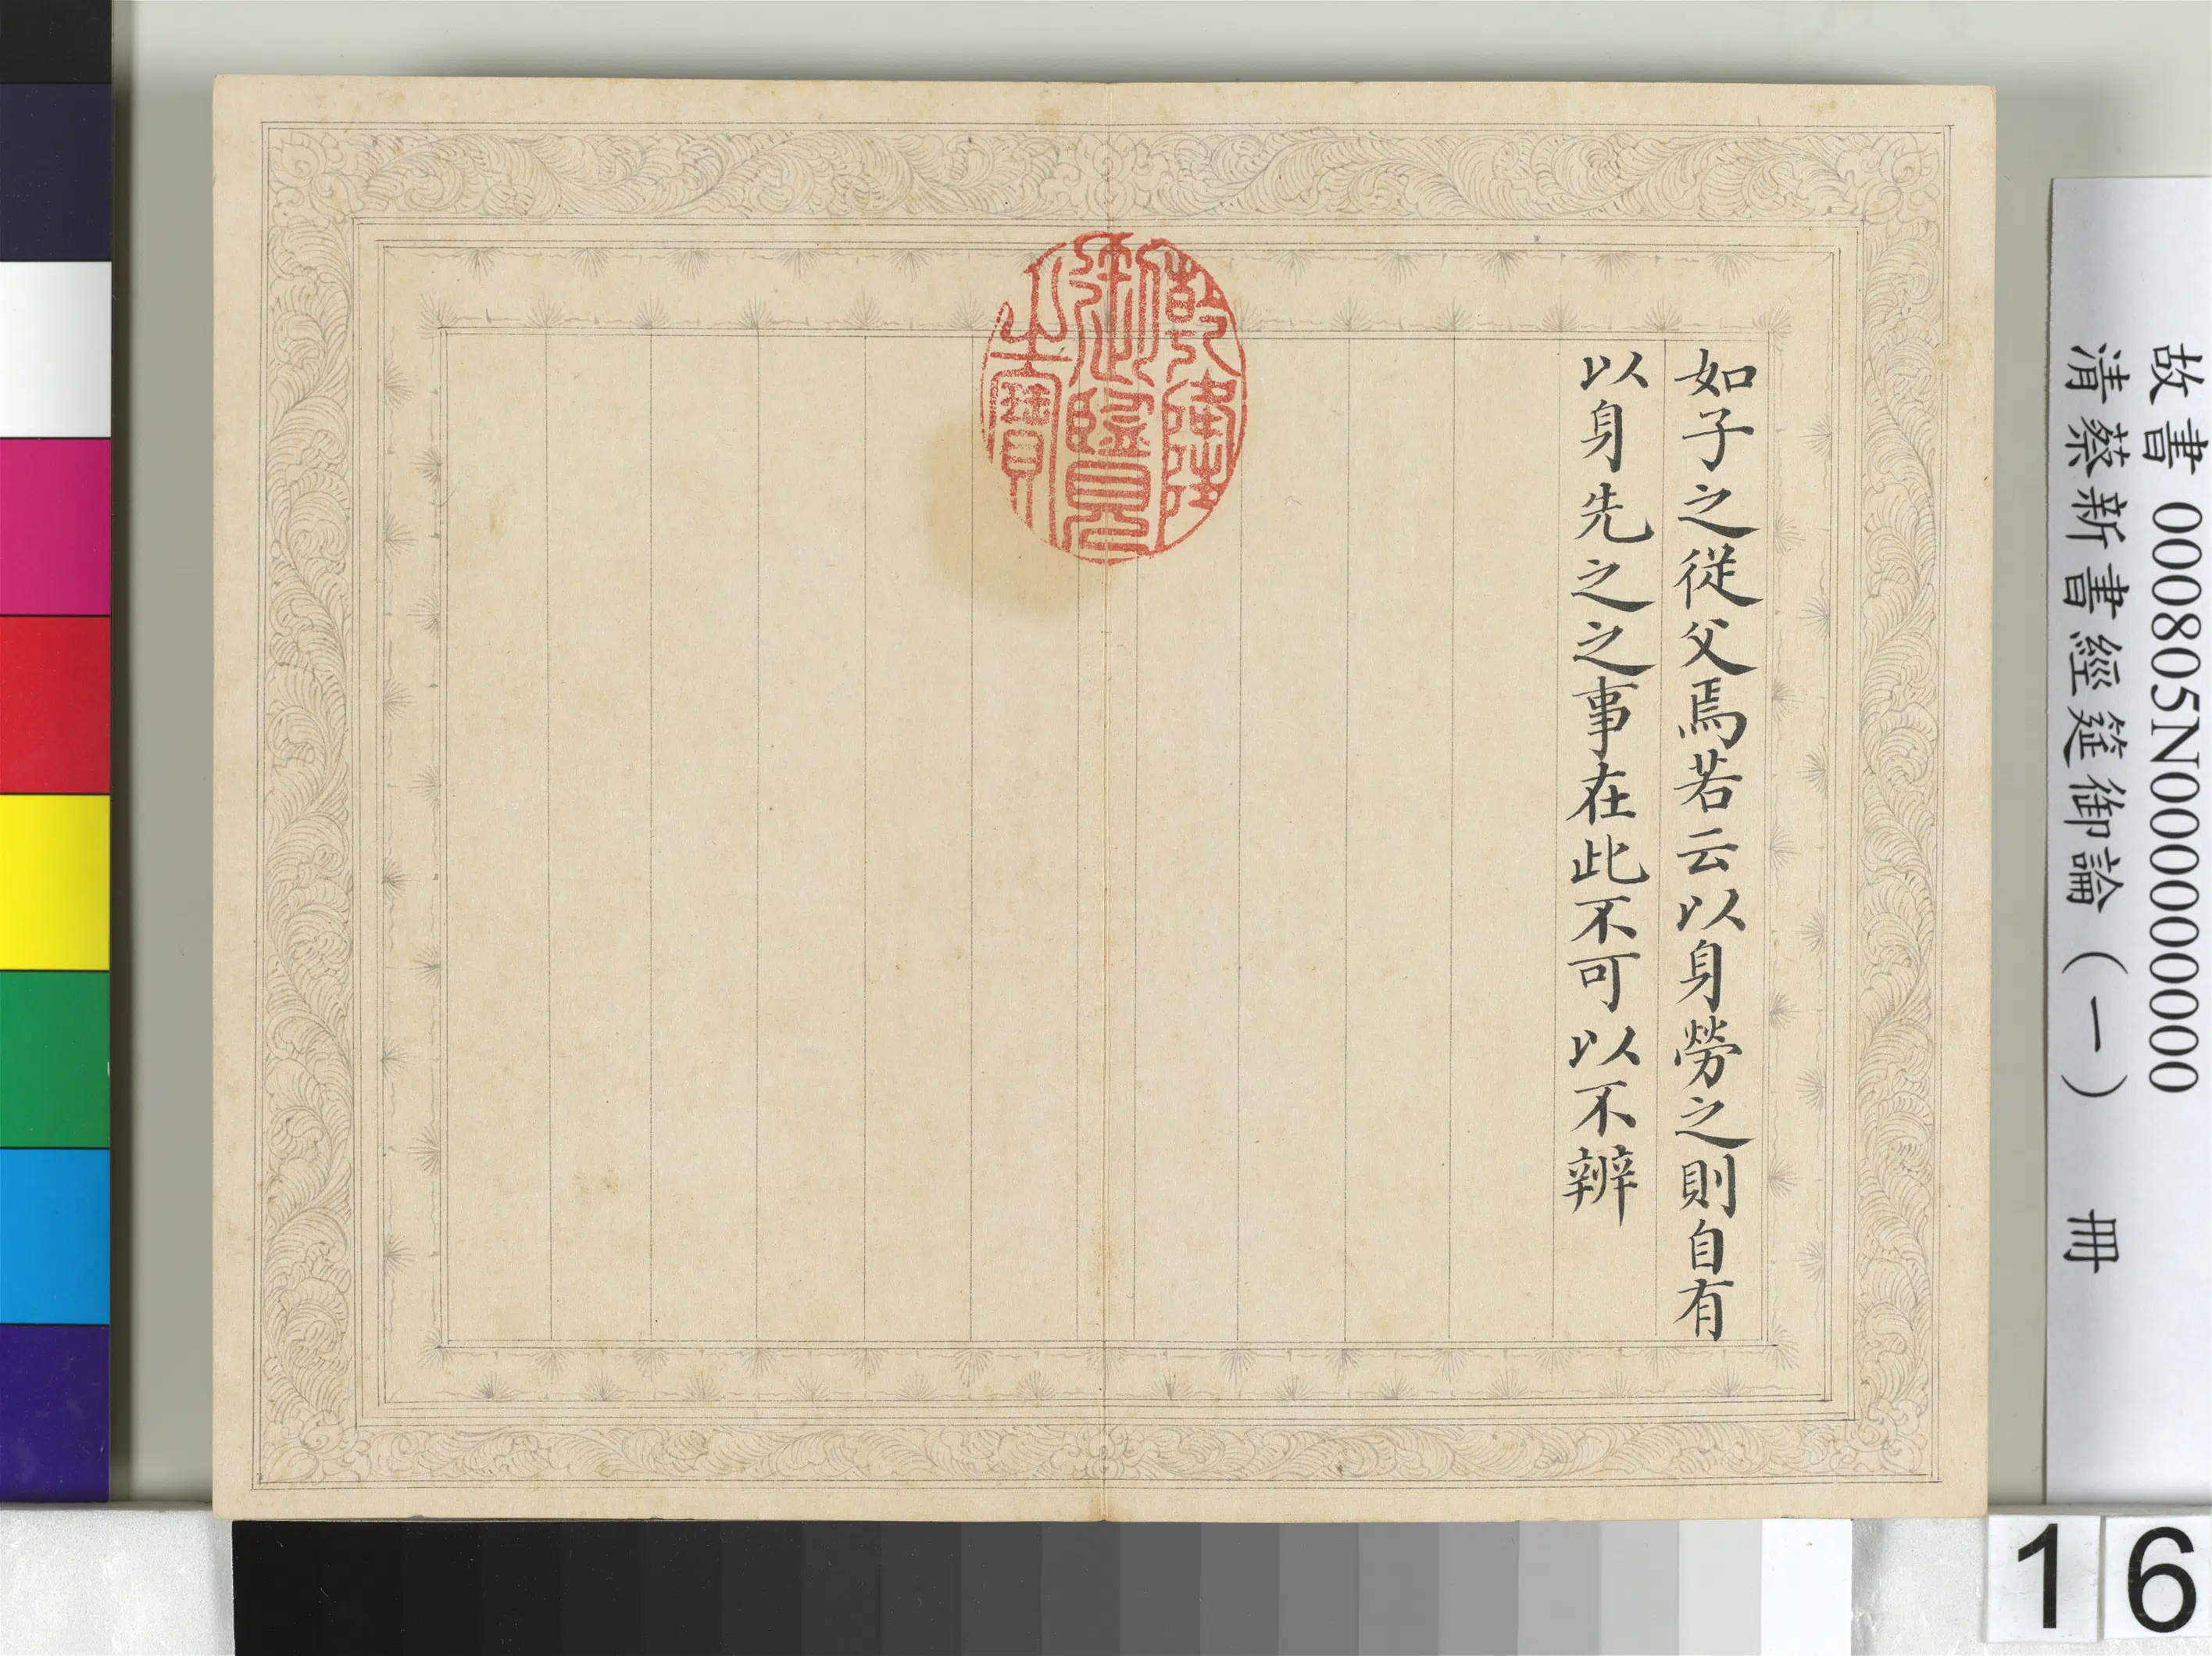 故書 000805N000000000
清蔡新書經筵御論（一） 冊
如子之從父焉若云以身勞之則自有
以身先之之事在此不可以不辨
乾隆
御覽
之寶
16